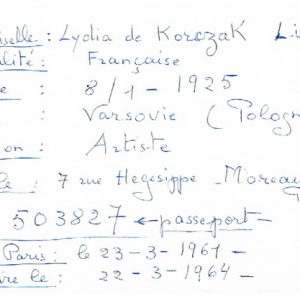 elle : Lydia de Korczak Li
alité : Française
e : 8/1 - 1925
: Varsovie ( Pologn
on : Artiste
le : 7 rue Hegesippe Moreau
503827 ← passeport -
Paris : le 23-3-1961 -
re le : 22-3-1964 -